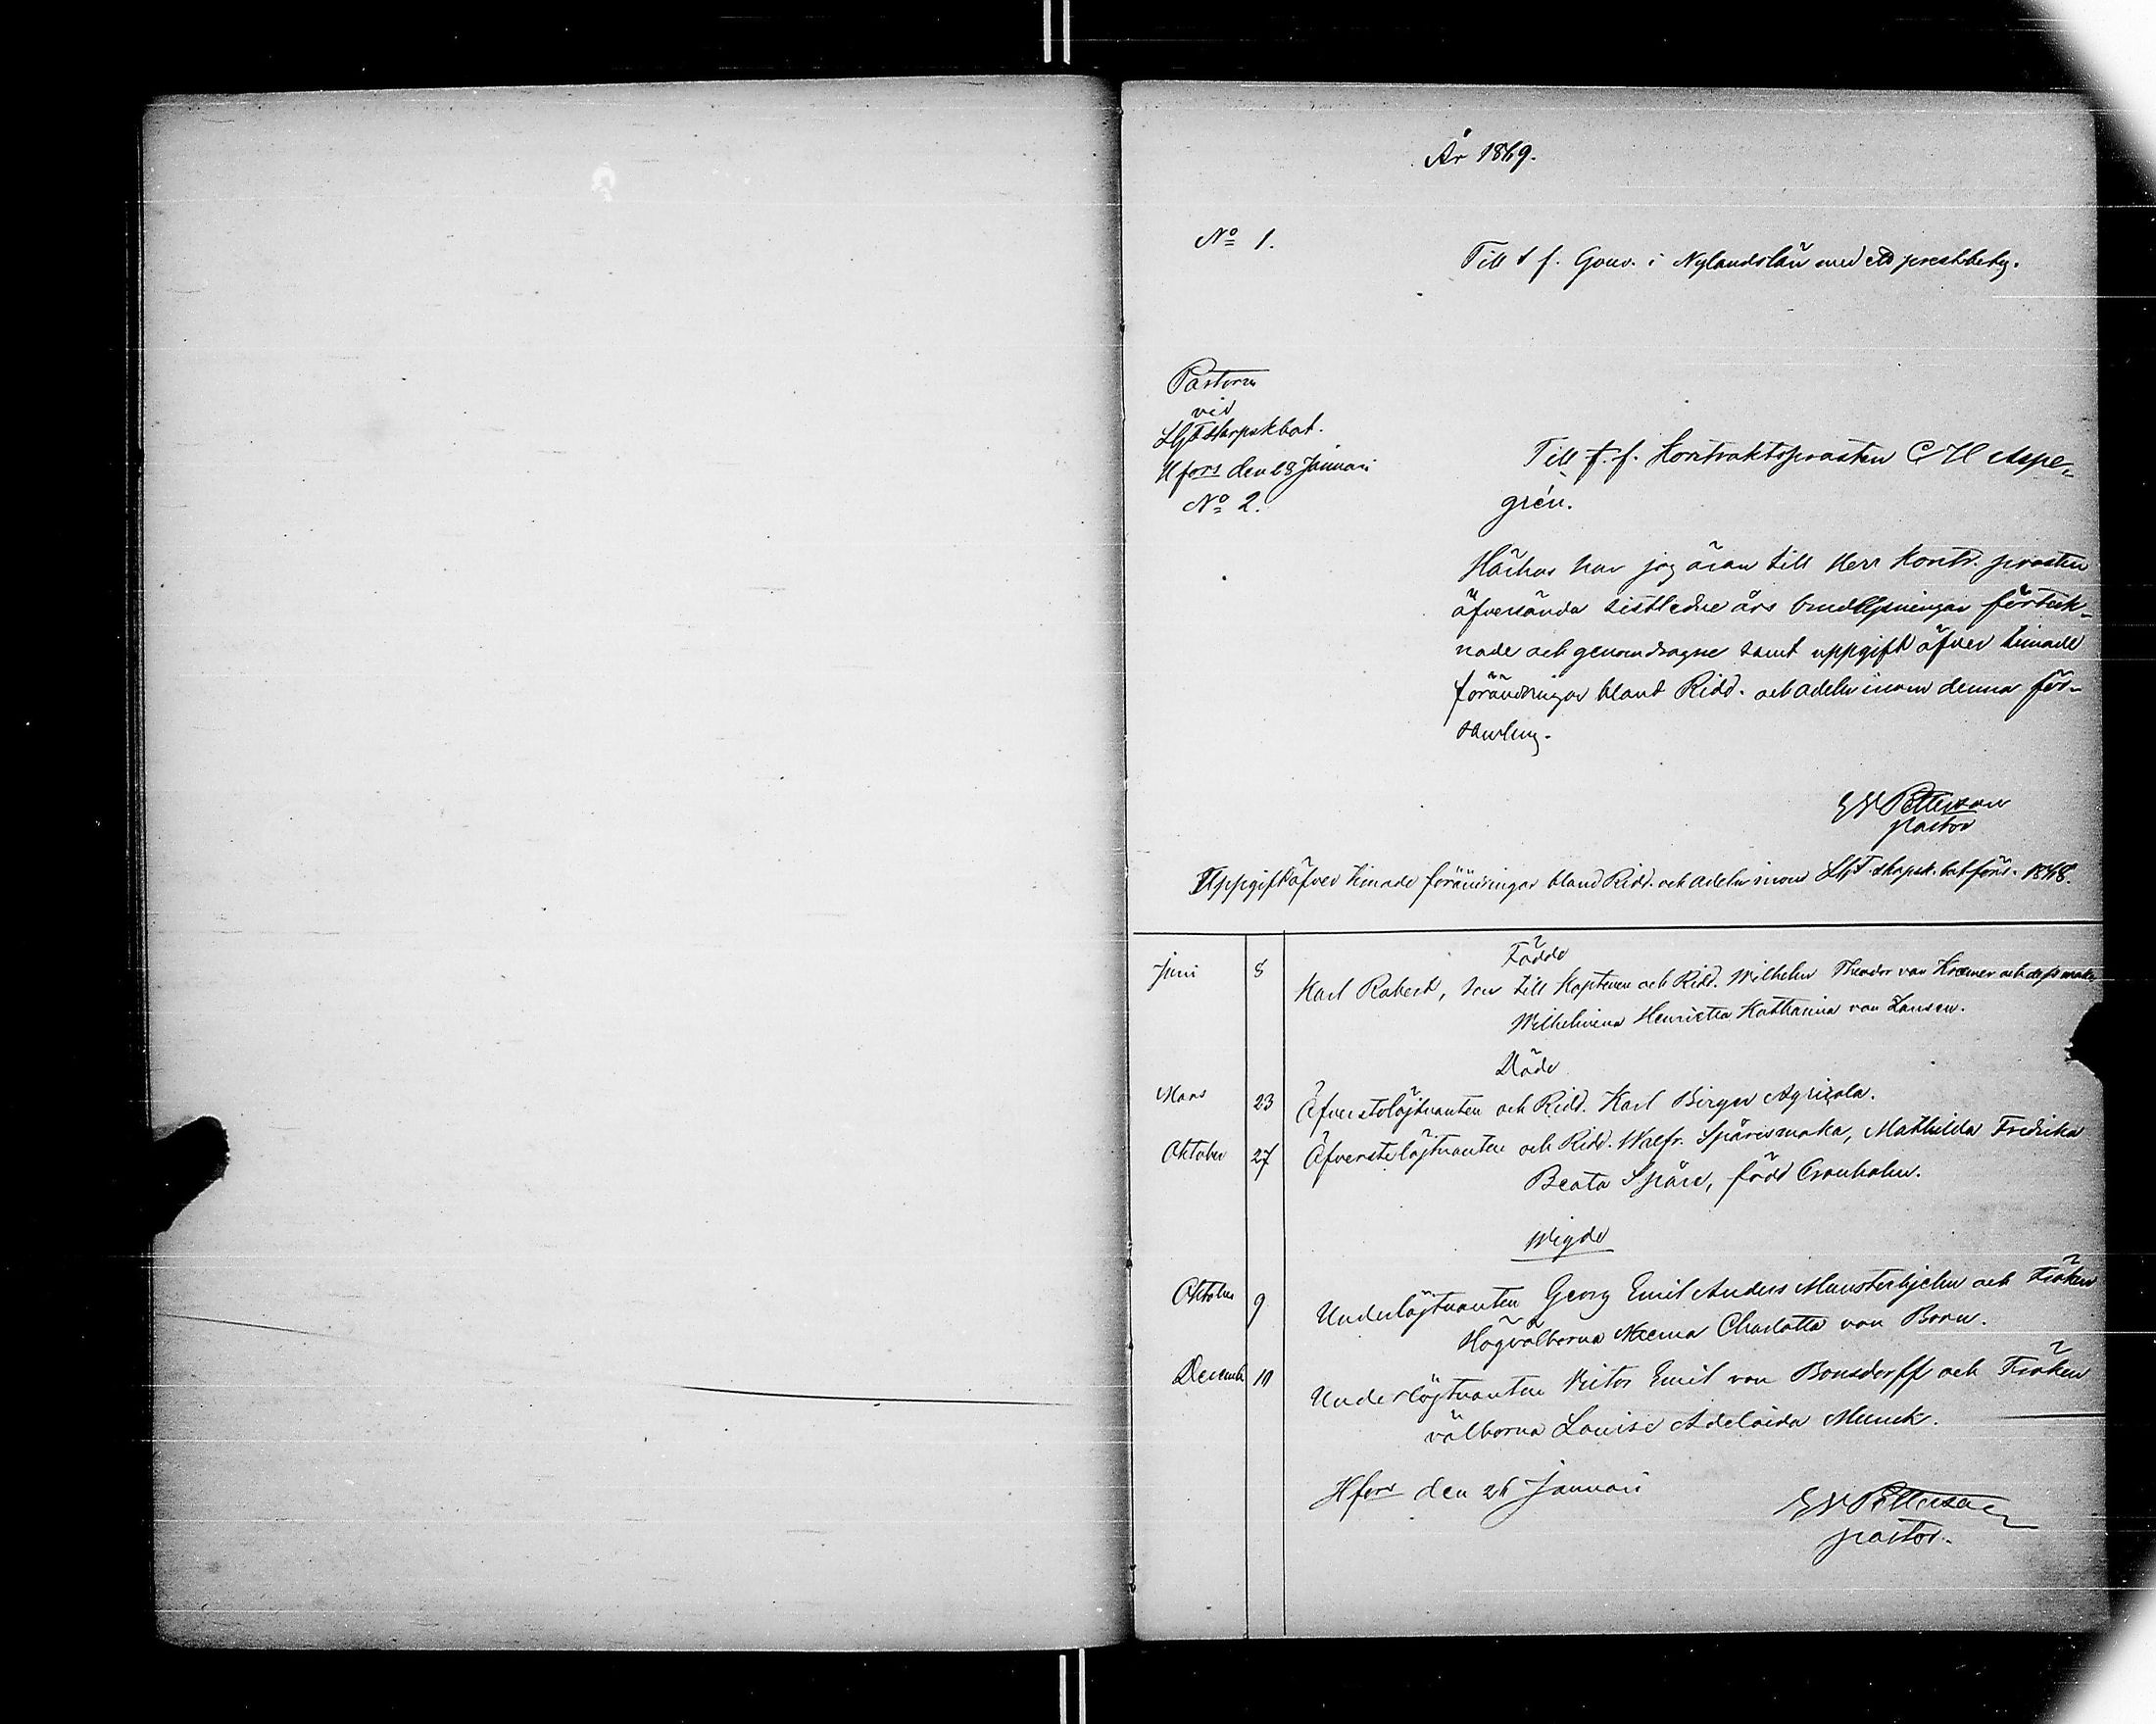 År 1869.
No 1.
Till t f. Guv. i Nylandslän med ett prestbetyg.
Pastorn
vid
LGF skarpskbat.
Hfors den 28 Januari
No 2.
Till t. f. Kontraktsprosten C H Aspe-
grén.
Härhos har jag äran till Herr Kontr. prosten
öfversända sistledne års förteck-
nade och genomdragne samt uppgift öfver timade
förändringar bland Ridd. och adeln inom denna för-
samling.
Petterson
pastor
Uppgift öfver timade förändringar bland Ridd. och adeln inom LGF. skapsk. bat förs. 1868.
Födde
Juni 8 Karl Robert, son till Kaptenen och Ridd. Wilhelm Theodor von Kræmer och dess maka
Wilhelmina Henrietta Katharina von Jansen.
Döde
Mars 23 Öfverstelöjtnanten och Ridd. Karl Birger Agricola.
Oktober 27 Öfverstelöjtnanten och Ridd. Walfr. Spåres maka, Mathilda Fredrika
Beata Spåre, född Cronholm.
Wigde
Oktober 9 Underlöjtnanten Georg Emil Anders Munsterhjelm och Fröken
Högvälborna Naema Charlotta von Born.
Decemb 10 Underlöjtnanten Victor Emil von Bonsdorff och Fröken
välborna Louise Adelaida Munck.
Hfors den 26 Januari
Petterson
pastor.